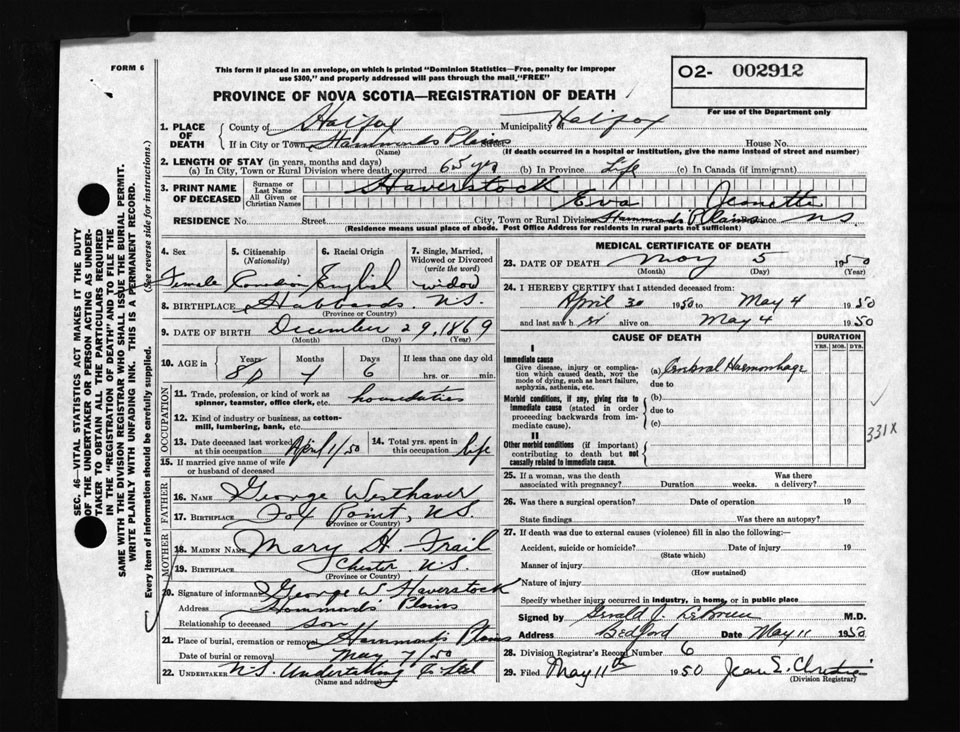 FORM 6
This form if placed in an envelope, on which is printed "Dominion Statistics—Free, penalty for improper
use $300," and properly addressed will pass through the mail "FREE"
O2- 002912
For use of the Department only
PROVINCE OF NOVA SCOTIA—REGISTRATION OF DEATH
SEC. 46—VITAL STATISTICS ACT MAKES IT THE DUTY
OF THE UNDERTAKER OR PERSON ACTING AS UNDER-
TAKER TO OBTAIN ALL THE PARTICULARS REQUIRED
IN THE "REGISTRATION OF DEATH" AND TO FILE THE
SAME WITH THE DIVISION REGISTRAR WHO SHALL ISSUE THE BURIAL PERMIT.
WRITE PLAINLY WITH UNFADING INK. THIS IS A PERMANENT RECORD.
Every item of information should be carefully supplied. (See reverse side for instructions.)
1. PLACE OF DEATH County of Halifax Municipality of Halifax
If in City or Town Hammonds Plains Street House No.
(Name) (If death occurred in a hospital or institution, give the name instead of street and number)
2. LENGTH OF STAY (in years, months and days)
(a) In City, Town or Rural Division where death occurred 65 yrs (b) In Province Life (c) In Canada (if immigrant)
3. PRINT NAME OF DECEASED Surname or Last Name Haverstock
All Given or Christian Names Eva Jeanette
RESIDENCE No. Street City, Town or Rural Division Hammonds Plains Province NS
(Residence means usual place of abode. Post Office Address for residents in rural parts not sufficient)
4. Sex 5. Citizenship (Nationality) 6. Racial Origin 7. Single, Married, Widowed or Divorced (write the word)
Female Canadian English widow
8. BIRTHPLACE Hubbards N.S.
(Province or Country)
9. DATE OF BIRTH December 29, 1869
(Month) (Day) (Year)
10. AGE in Years Months Days If less than one day old
80 7 6 hrs. or min.
OCCUPATION
11. Trade, profession, or kind of work as spinner, teamster, office clerk, etc. houseduties
12. Kind of industry or business, as cotton-mill, lumbering, bank, etc.
13. Date deceased last worked at this occupation April 1/50 14. Total yrs. spent in this occupation life
15. If married give name of wife or husband of deceased
FATHER
16. NAME George Westhaver
17. Birthplace Fox Point, N.S.
(Province or Country)
MOTHER
18. MAIDEN NAME Mary H. Frail
19. BIRTHPLACE Chester N.S.
(Province or Country)
20. Signature of informant George W Haverstock
Address Hammonds Plains
Relationship to deceased son
21. Place of burial, cremation or removal Hammonds Plains
Date of burial or removal May 7/50
22. UNDERTAKER N.S. Undertaking Co Ltd
(Name and address)
MEDICAL CERTIFICATE OF DEATH
23. DATE OF DEATH May 5 1950
(Month) (Day) (Year)
24. I HEREBY CERTIFY that I attended deceased from:
April 30 1950 to May 4 1950
and last saw her alive on May 4 1950
CAUSE OF DEATH DURATION
YRS. MOS. DYS.
I
Immediate cause
Give disease, injury or complication which caused death, NOT the mode of dying, such as heart failure, asphyxia, asthenia, etc.
(a) Cerebral Haemorrhage
due to
Morbid conditions, if any, giving rise to immediate cause (stated in order proceeding backwards from immediate cause).
(b)
due to
(c)
331X
II
Other morbid conditions (if important) contributing to death but not causally related to immediate cause.
25. If a woman, was the death associated with pregnancy? Duration weeks. Was there a delivery?
26. Was there a surgical operation? Date of operation 19
State findings Was there an autopsy?
27. If death was due to external causes (violence) fill in also the following:
Accident, suicide or homicide? Date of injury 19
(State which)
Manner of injury
(How sustained)
Nature of injury
Specify whether injury occurred in industry, in home, or in public place
Signed by Gerald J. LeBrun M.D.
Address Bedford Date May 11 1950
28. Division Registrar's Record Number 6
29. Filed May 11th 1950 Jean E. Christie
(Division Registrar)